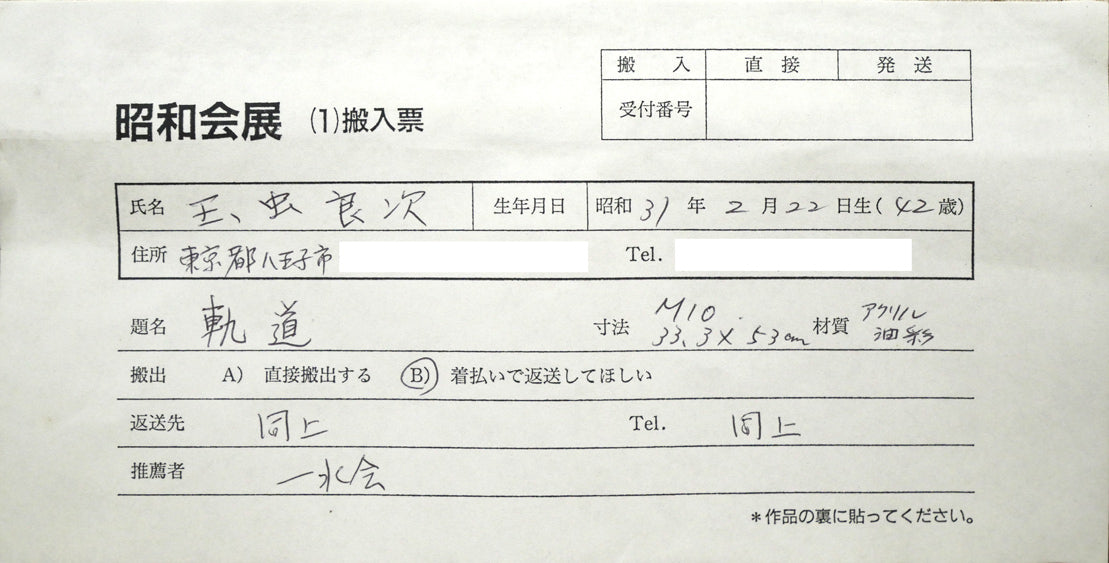 搬入 直接 発送
受付番号
昭和会展 (1)搬入票
氏名 玉虫良次 生年月日 昭和31年2月22日生(42歳)
住所 東京都八王子市 Tel.
題名 軌道 寸法 M10 33.3×53cm 材質 アクリル 油彩
搬出 A) 直接搬出する B) 着払いで返送してほしい
返送先 同上 Tel. 同上
推薦者 一水会
*作品の裏に貼ってください。